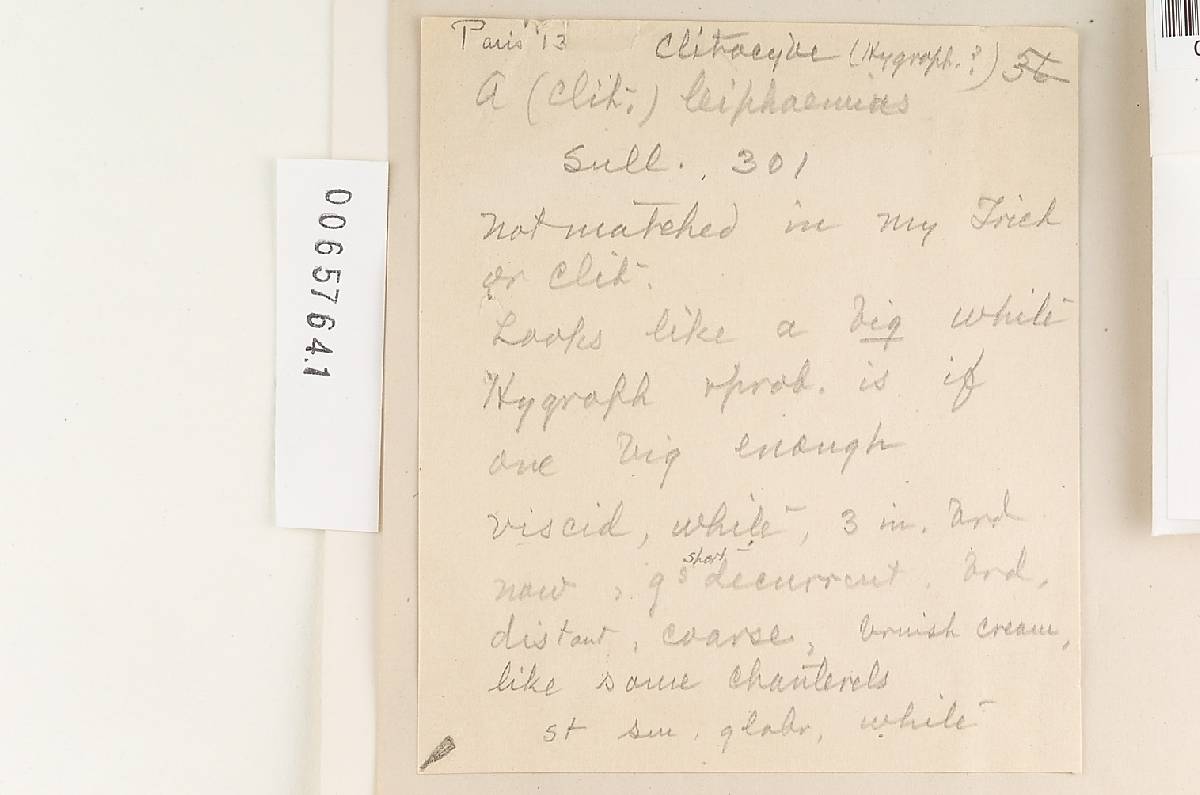 Paris '13 Clitocybe (Hygroph.?) 56
A (Clit.) leiphaemius
Sull., 301
not matched in my Trich
or Clit.
Looks like a big white
Hygroph & prob. is if
one big enough
viscid, white, 3 in. brd
now, gs short decurrent, brd,
distant, coarse, brnish cream,
like some chanterels
st sm, glabr, white
0065764.1